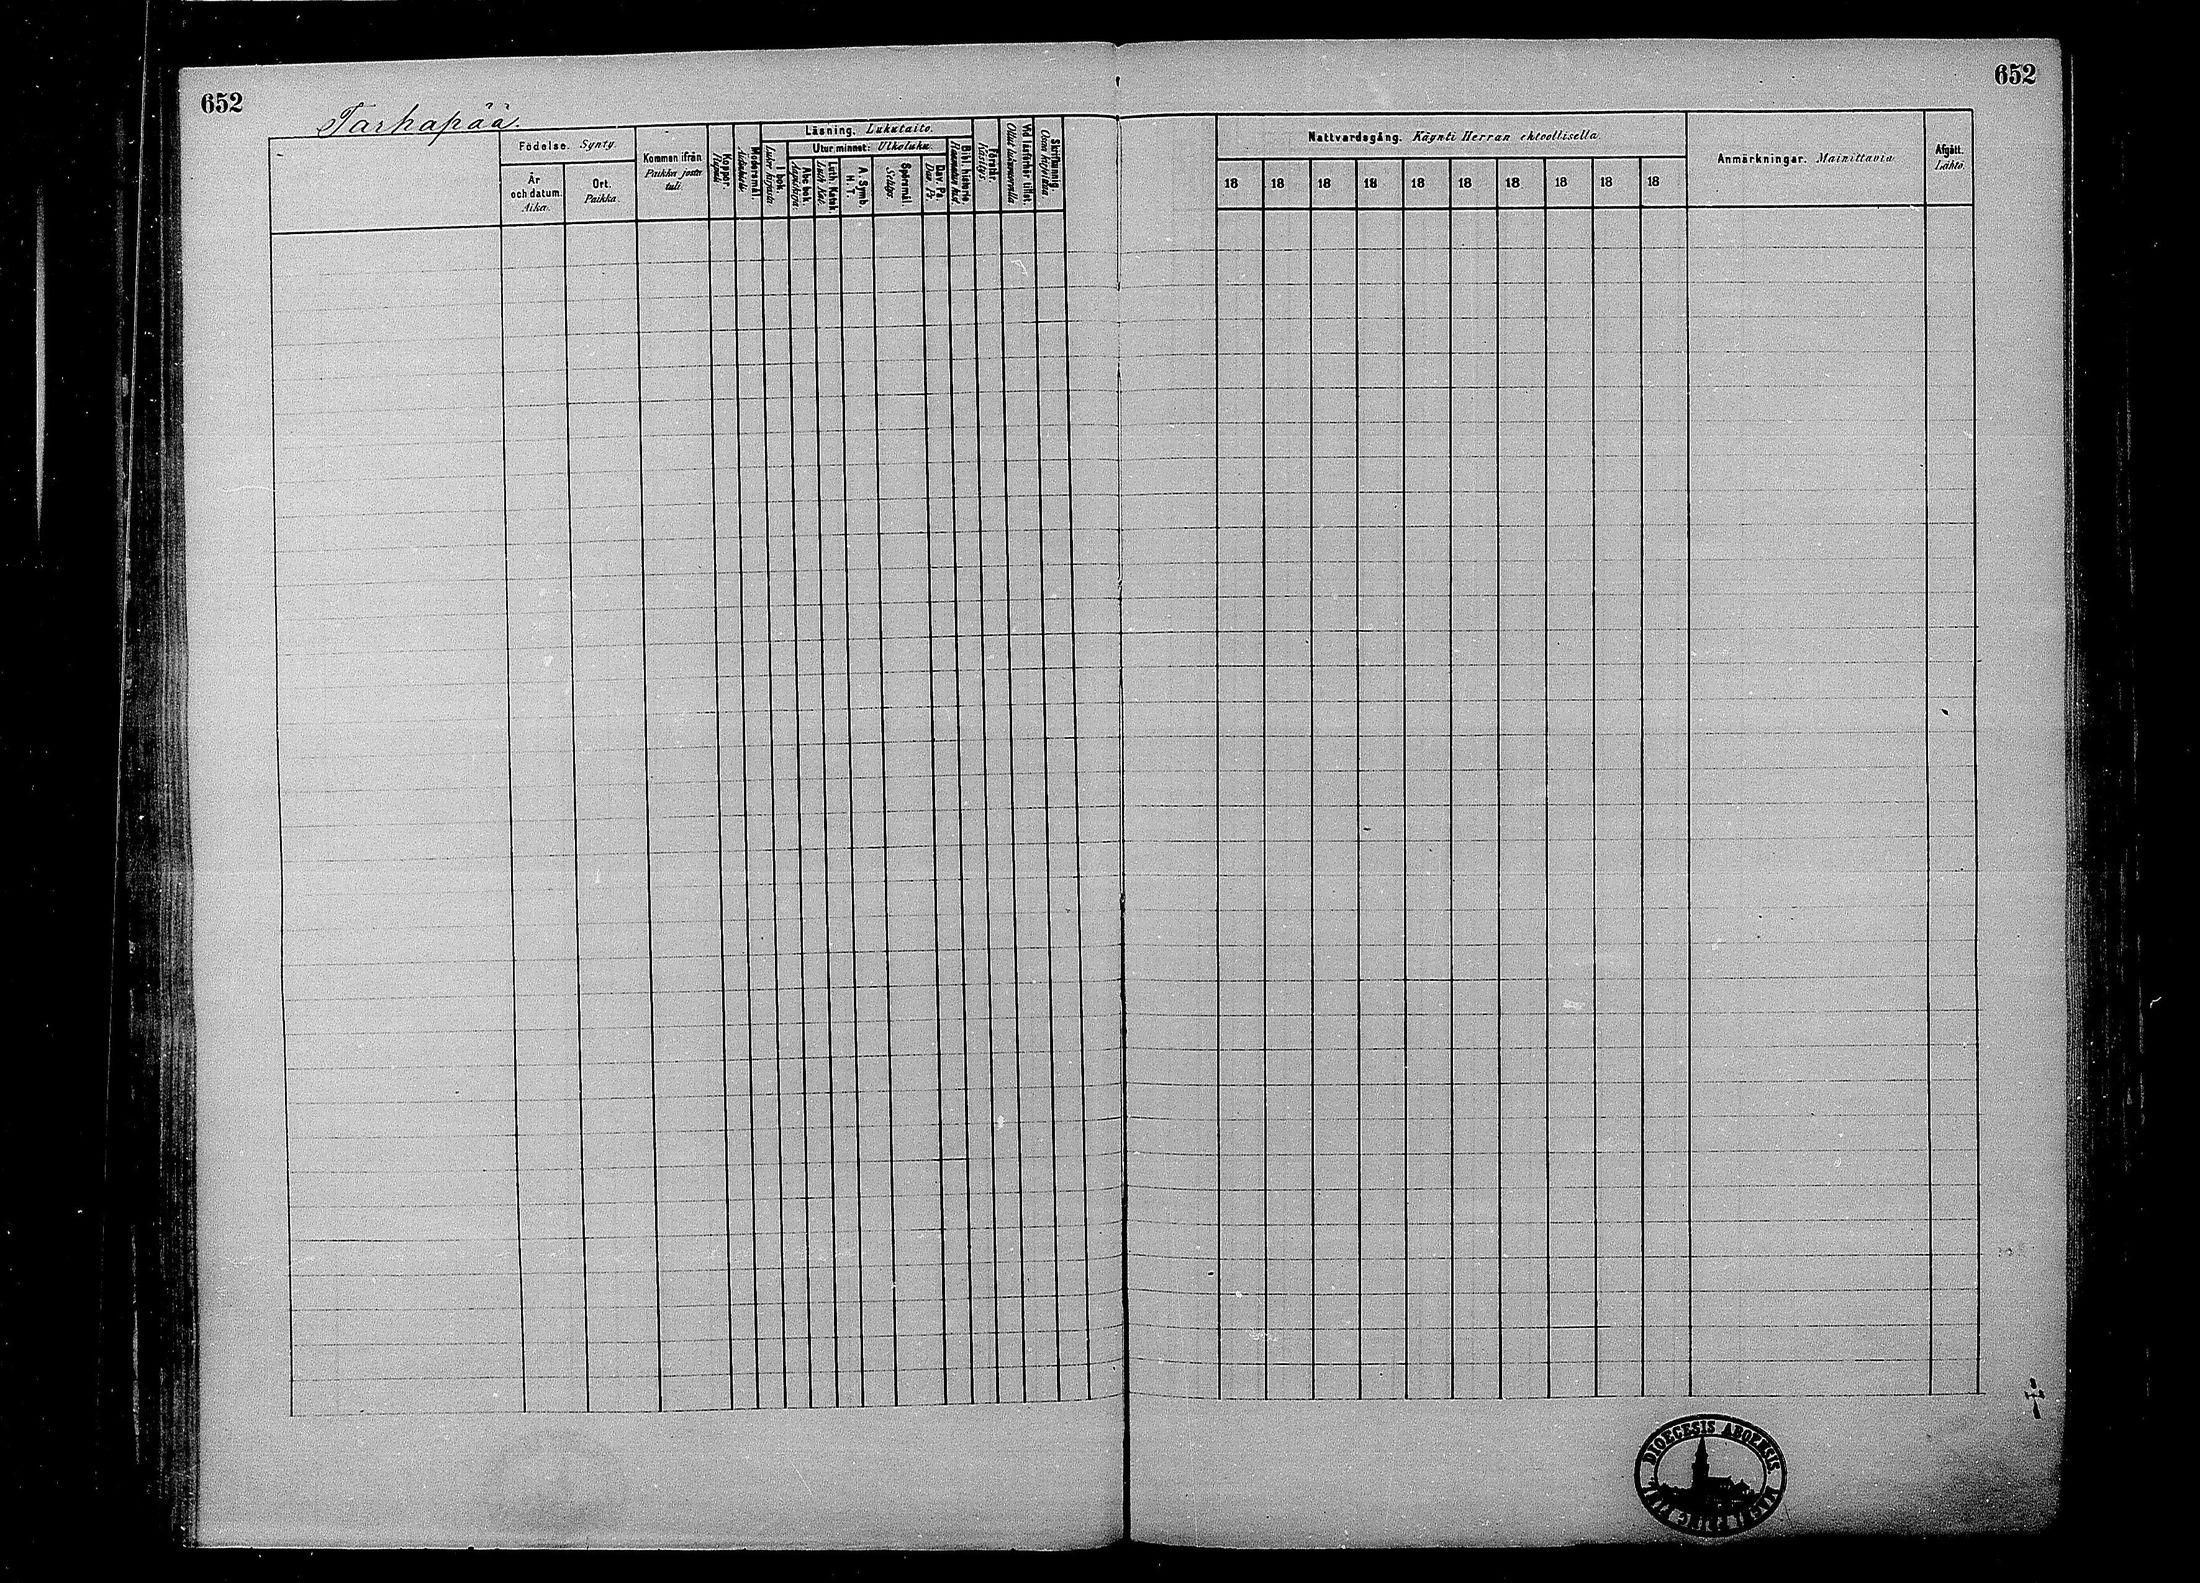 652
652
Tarhapää.
Födelse. Synty.
År och datum. Aika.
Ort. Paikka.
Kommen ifrån. Paikka josta tuli.
Koppor. Rupuli
Modersmål.
Läsning. Lukutaito.
I bok.
Utur minnet: Ulkoluku.
Abc bok. Aapiskirja.
Luth. Katek. Luth. Kat.
A. Symb. H. T.
Spörsmål. Selitys.
Dav. Ps. Dav. Ps.
Bibl. historia.
Förstår. Käsitys.
Vid läsförhör tillst. Ollut lukuvuorolla
Skrifkunnig. Osaa kirjoittaa.
Nattvardsgång. Käynti Herran ehtoollisella.
18 18 18 18 18 18 18 18 18 18
Anmärkningar. Mainittavia
Afgått. Lähtö.
DIOECESIS ABOENSIS